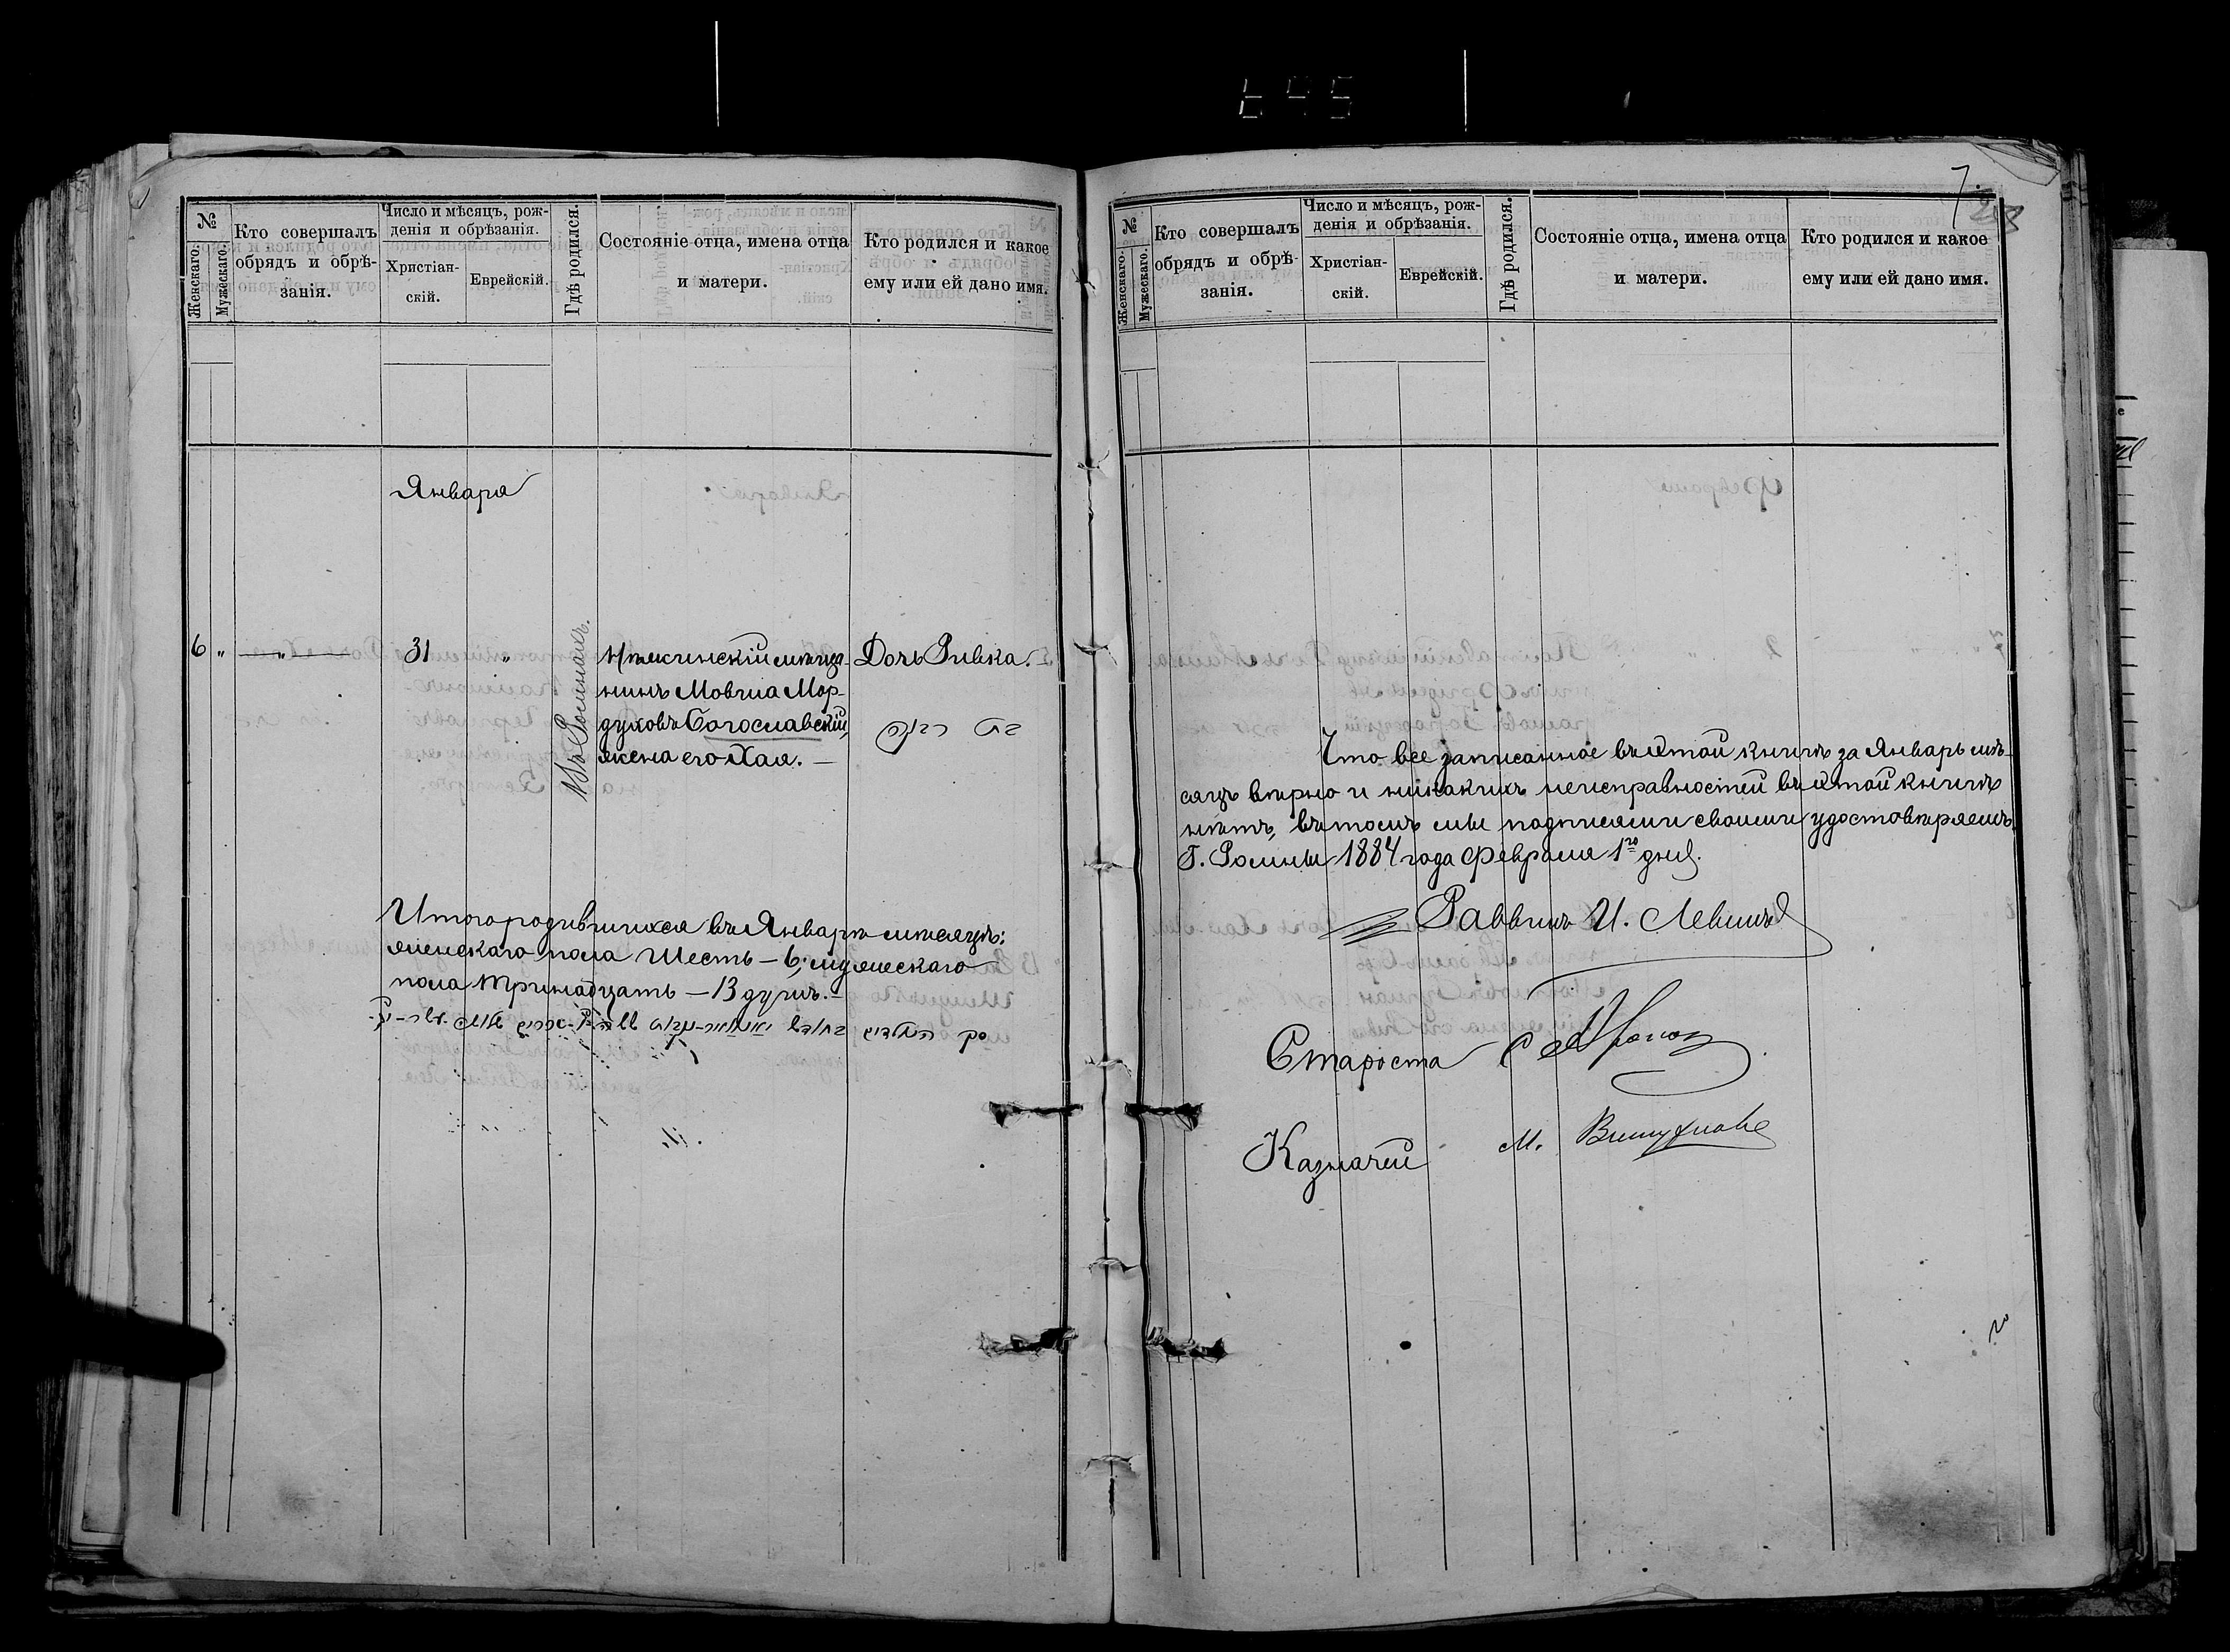 №
Женскаго.
Мужескаго.
Кто совершалъ
обрядъ и обрѣ-
занія.
Число и мѣсяцъ, рож-
денія и обрѣзанія.
Христіан-
скій.
Еврейскій.
Гдѣ родился.
Состояніе отца, имена отца
и матери.
Кто родился и какое
ему или ей дано имя.
Января
6 " " 31 "
Въ Ромнахъ.
мѣща-
нинъ Мовша Мор-
духовъ Богославскій,
жена его Хая. —
Дочь Ривка. —
בת רבקה
Итого родившихся въ Январѣ мѣсяцѣ:
женскаго пола Шесть — 6; мужескаго
пола тринадцать — 13 душъ. —
7.
№
Женскаго.
Мужескаго.
Кто совершалъ
обрядъ и обрѣ-
занія.
Число и мѣсяцъ, рож-
денія и обрѣзанія.
Христіан-
скій.
Еврейскій.
Гдѣ родился.
Состояніе отца, имена отца
и матери.
Кто родился и какое
ему или ей дано имя.
Что все записанное въ этой книгѣ за Январь мѣ-
сяцъ вѣрно и никакихъ неисправностей въ этой книгѣ
нѣтъ, въ томъ мы подписями своими удостовѣряемъ.
Г. Ромны 1884 года Февраля 1го дня.
Раввинъ И. Левинъ
Староста
Казначей М.